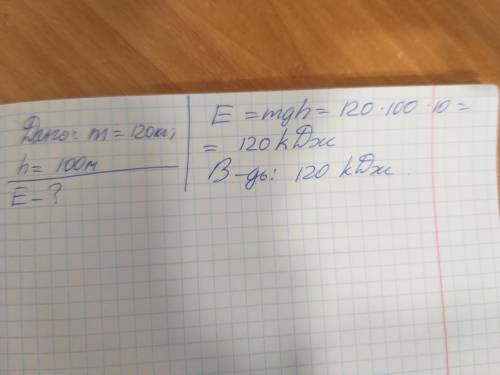 Дано: m = 120кг,
h = 100м
E - ?
E = mgh = 120 · 100 · 10 =
= 120 kДж
В-дь: 120 kДж.